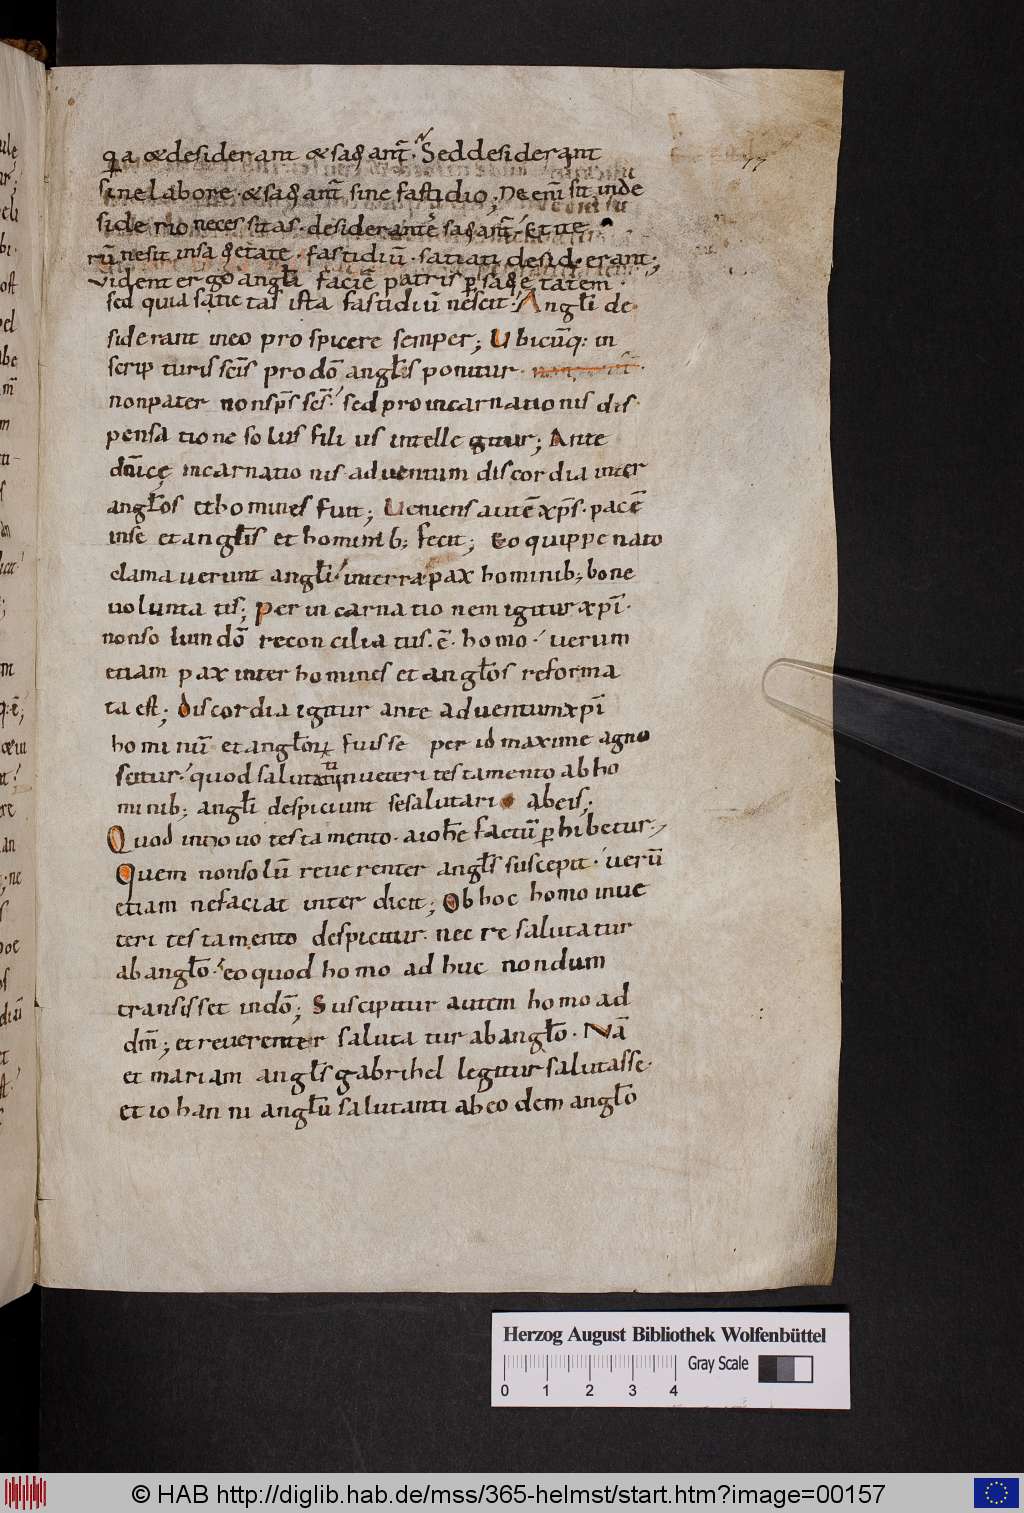 77
qa & desiderant & saꝗant̄. Sed desiderant
sine labore. & saꝗant̄ sine fastidio; Ne enī sit inde
siderio necessitas. desiderantes saꝗant̄. Et ne
rū nesit insaꝗetate. fastidiū. satiati desiderant;
vident ergo angl̄i faciē patris p saꝗetatem.
sed quia satietas ista fastidiū nescit. Angl̄i de
siderant in eo prospicere semper; Ubicūq: in
scripturis sc̄is pro dō angl̄s ponitur.
non pater non sp̄s sc̄s. sed pro incarnationis dis
pensatione solus filius intellegitur; Ante
dn̄icę incarnationis aduentum discordia inter
angl̄os et homines fuit; Veniens autē xp̄s. pacē
in se et angl̄is et hominib; fecit; Eo quippe nato
clamauerunt angl̄i. in terra pax hominib; bone
uoluntatis; Per incarnationem igitur xp̄i.
non solum dō reconciliatus. ē. homo. uerum
etiam pax inter homines et angl̄os reforma
ta est; Discordia igitur ante aduentum xp̄i
hominū et angl̄oꝝ fuisse per id maxime agno
scitur. quod salutati in ueteri testamento ab ho
minib; angl̄i despiciunt se salutari ab eis;
Quod in nouo testamento. a iohe factū phibetur.
Quem non solū reuerenter angl̄s suscepit. uerū
etiam ne faciat interdicit; Ob hoc homo in ue
teri testamento despicitur. nec resalutatur
ab angl̄o. eo quod homo adhuc nondum
transisset in dō; Suscipitur autem homo a d
dm̄; et reuerenter salutatur ab angl̄o. Nā
et mariam angl̄s gabrihel legitur salutasse.
et iohanni angl̄ū salutanti ab eodem angl̄o
Herzog August Bibliothek Wolfenbüttel
Gray Scale
0 1 2 3 4
© HAB http://diglib.hab.de/mss/365-helmst/start.htm?image=00157